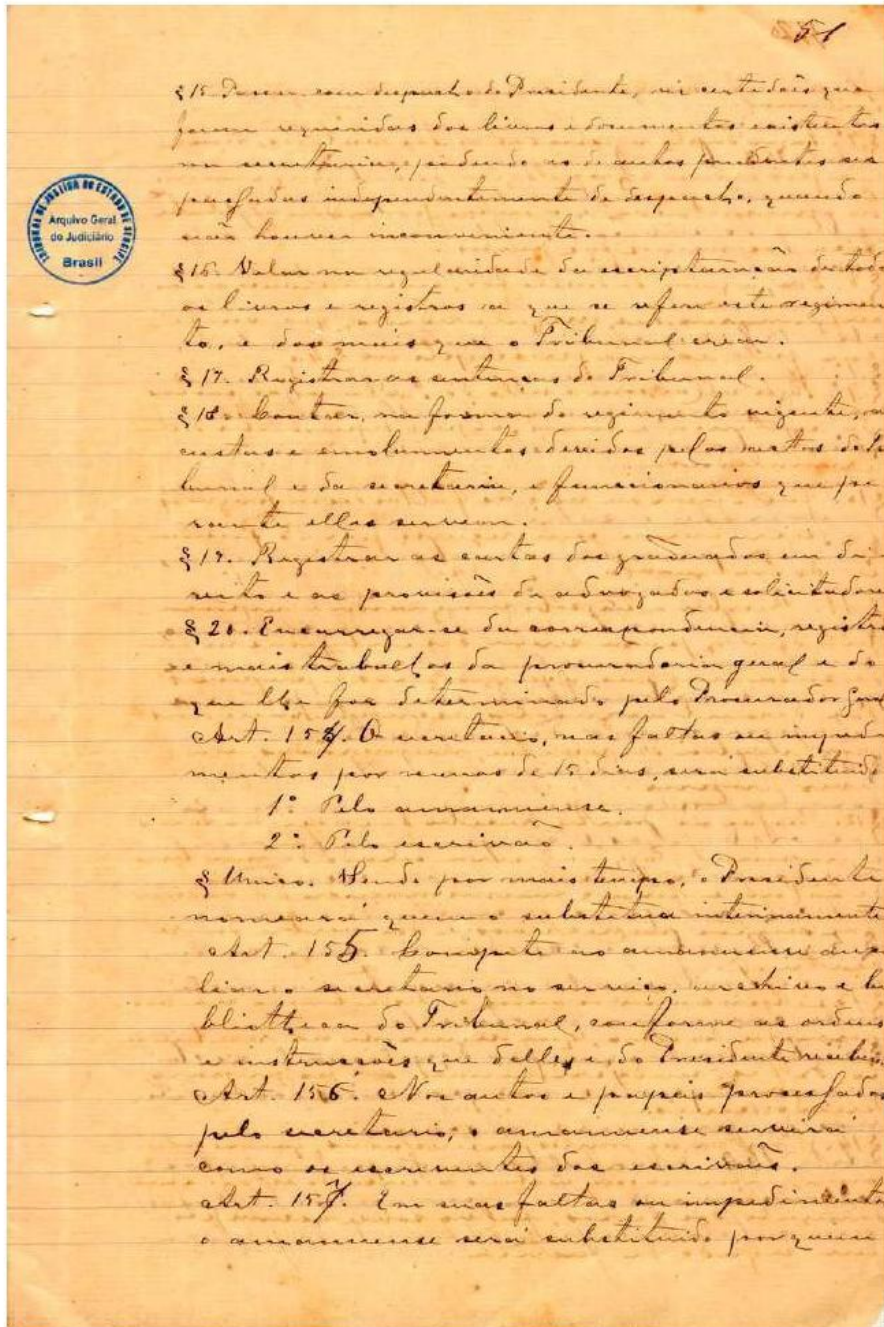 51
§ 15 Passar com despacho do Presidente, as certidões que
forem requeridas dos livros e documentos existentes
na secretaria, podendo as de autos pendentes ser
passadas independentemente de despacho, quando
não houver inconveniente.
§ 16. Velar na regularidade da escripturação de tod
os livros e registros a que se refere este regimen
to, e dos mais que o Tribunal crear.
§ 17. Registrar as sentenças do Tribunal.
§ 18. Contar, na forma do regimento vigente, a
custas e emolumentos devidos pelos actos do
bunal e da secretaria, e funccionarios que pe
rante elles servem.
§ 19. Registrar as cartas dos graduados em di
reito e as provisões de advogados e solicitadore
§ 20. Encarregar-se da correspondencia, registro
e mais trabalhos da procuradoria geral e do
que lhe for determinado pelo Procurador Geral
Art. 154. O secretario, nas faltas ou impedi
mentos por menos de 15 dias, será substituido
1º Pelo amanuense.
2º Pelo escrivão.
§ Unico. Sendo por mais tempo, o Presidente
nomeará quem o substitua interinamente
Art. 155. Compete ao amanuense aux
liar o secretario no serviço, archivo e bi
bliotheca do Tribunal, conforme as ordens
e instrucções que delle, e do Presidente receber.
Art. 156. Nos autos e papeis processados
pelo secretario, o amanuense servirá
como os escreventes dos escrivães.
Art. 157. Em suas faltas ou impedimento
o amanuense será substituido por quem
TRIBUNAL DE JUSTIÇA DO ESTADO DE SERGIPE
Arquivo Geral
do Judiciário
Brasil